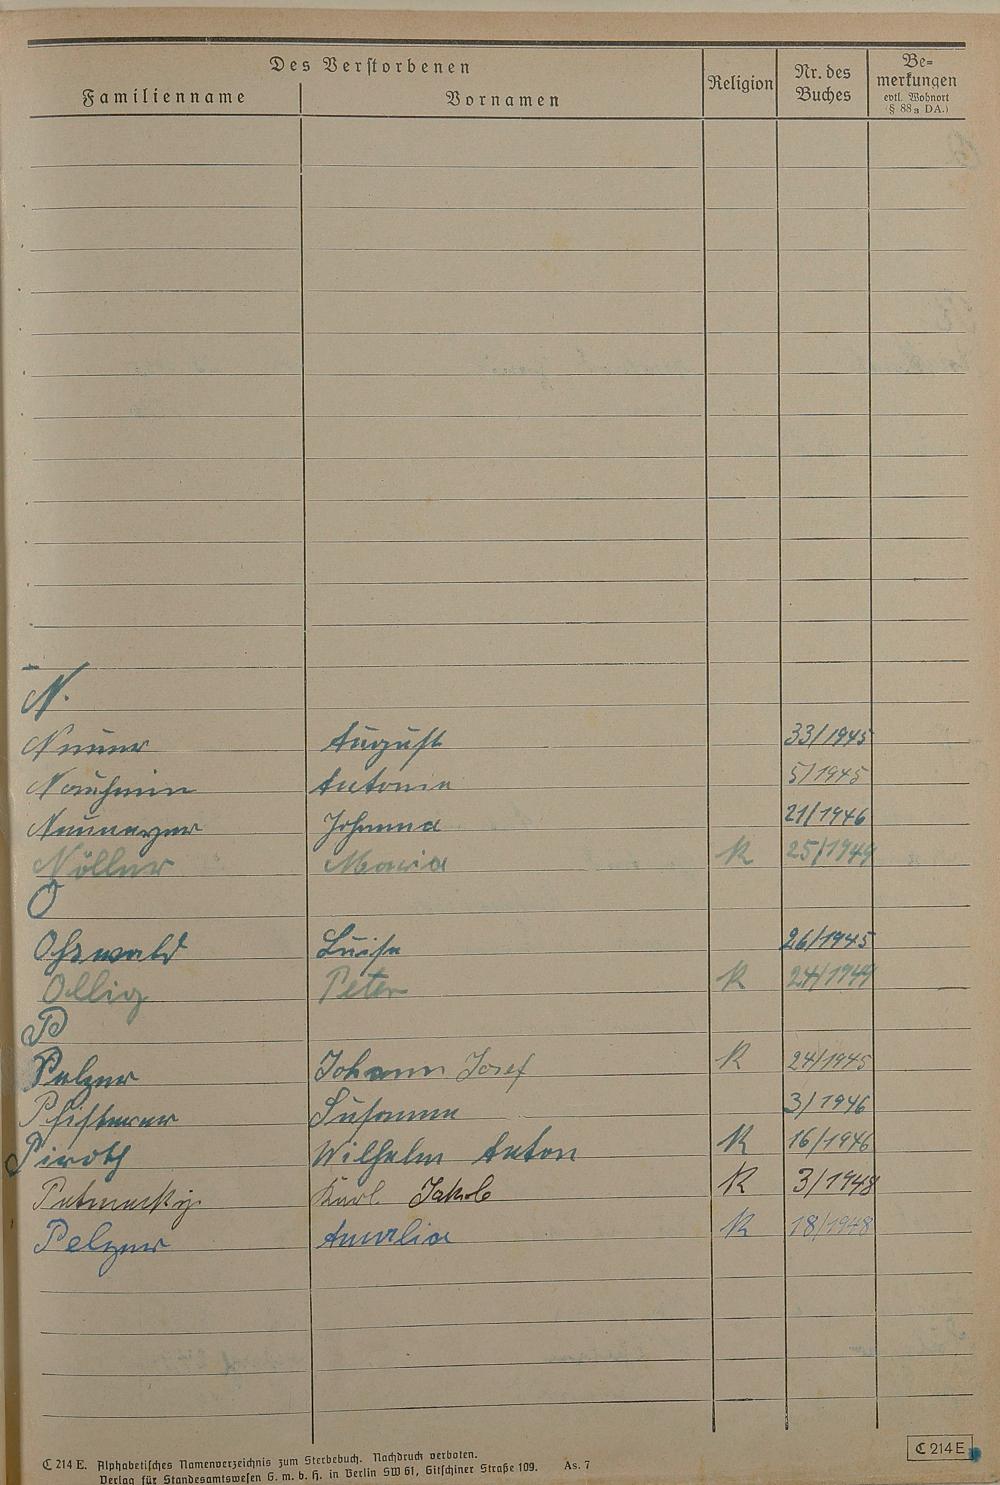 Des Verstorbenen
Familienname Vornamen Religion Nr. des Buches Be=merkungen evtl. Wohnort (§ 88a DA.)
N.
August 33/1945
Antonie 5/1945
Johanna 21/1946
Nöller Maria K 25/1949
O
Ohswald Luise 26/1945
Ollig Peter K 24/1949
P
Pelzer Johann Josef K 24/1945
Pfisterer Susanne 3/1946
Piroth Wilhelm Anton K 16/1946
Karl Jakob K 3/1948
Pelzer Amalia K 18/1948
C 214 E. Alphabetisches Namenverzeichnis zum Sterbebuch. Nachdruck verboten.
Verlag für Standesamtswesen G. m. b. H. in Berlin SW 61, Gitschiner Straße 109. As. 7
C 214 E